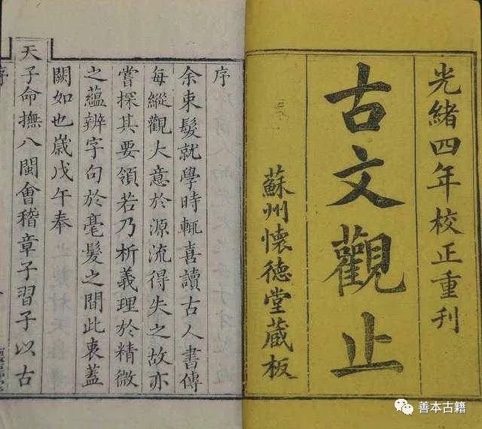 光緒四年校正重刊
古文觀止
蘇州懷德堂藏板
序
余束髮就學時輒喜讀古人書傳
每縱觀大意於源流得失之故亦
嘗探其要領若乃析義理於精微
之蘊辨字句於毫髮之間此衷蓋
闕如也歲戊午奉
天子命撫八閩會稽章子習子以古
善本古籍